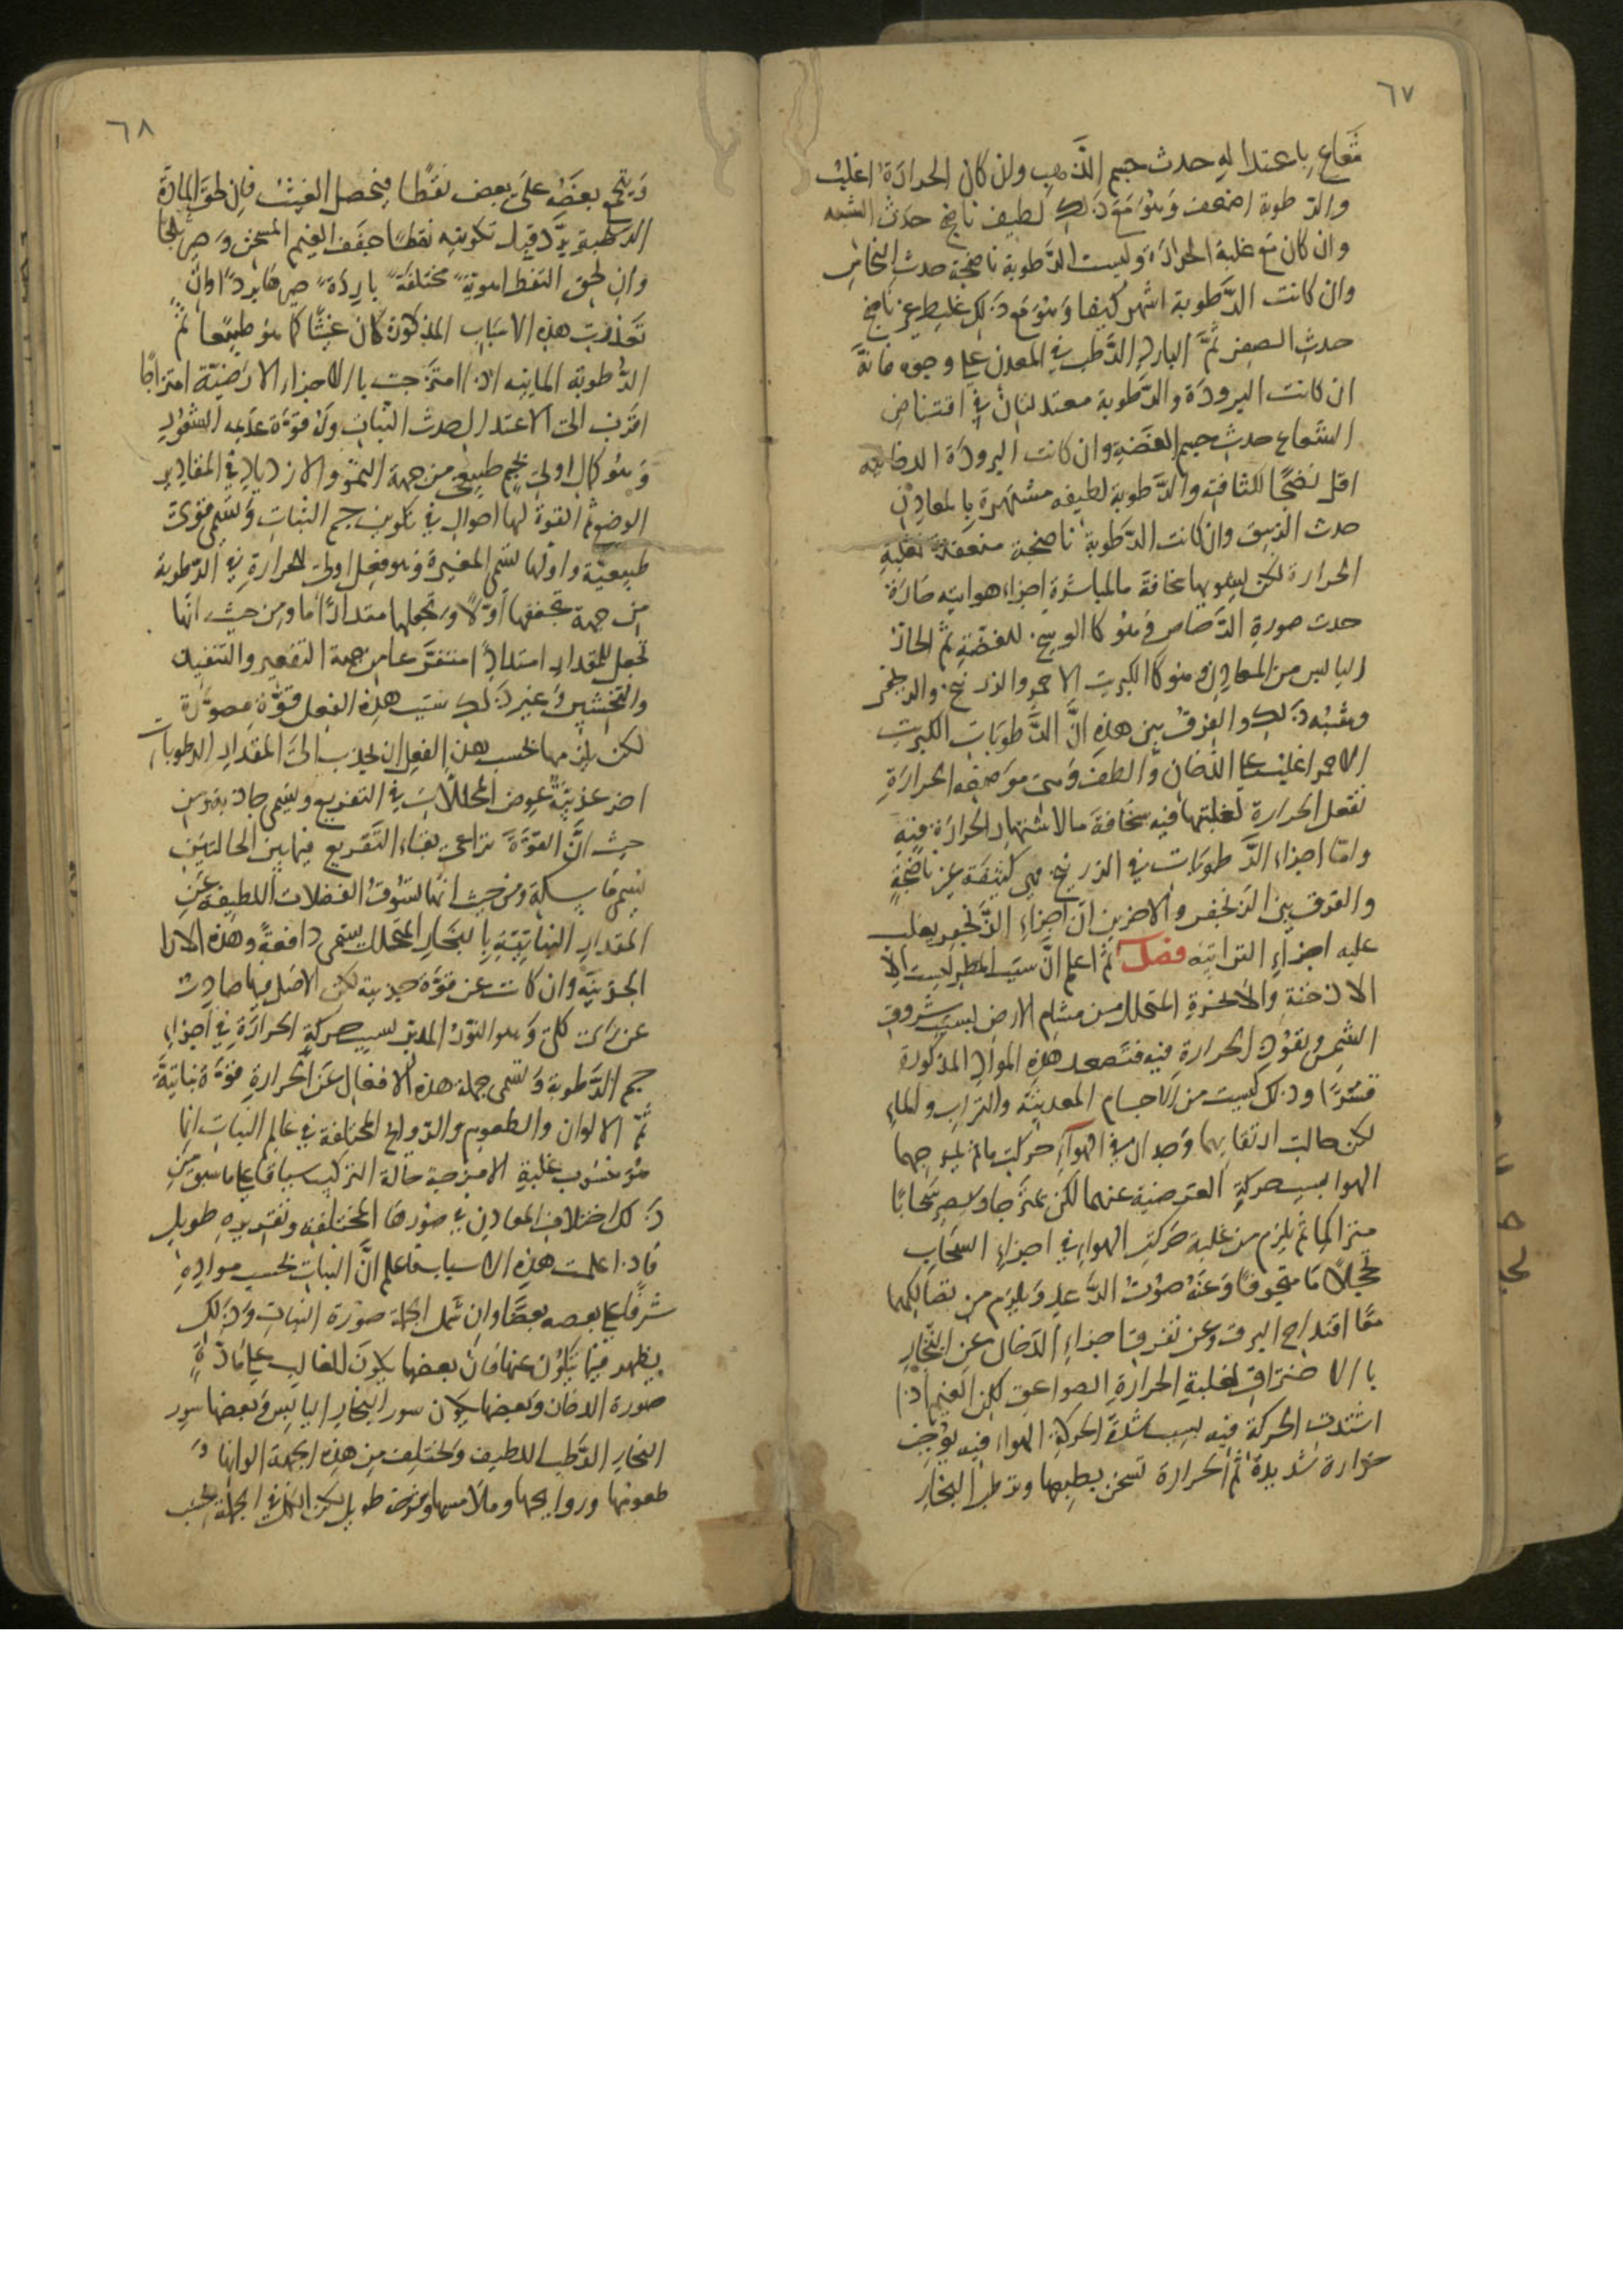 ٦٧
شعاع باعتداله حدث جسم الذهب وان كان الحرارة اغلب
والرطوبة اضعف وهو مع ذلك لطيف ناضج حدث الشبه
وان كان مع غلبة الحرارة وليست الرطوبة ناضجة حدث النحاس
وان كانت الرطوبة اشهر كيفا وهو مع ذلك غليظ غير ناضج
حدث الصفر ثم البارد الرطب في المعدن على وجوه فانه
ان كانت البرودة والرطوبة معتدلتان في اقتناص
الشعاع حدث جسم الفضة وان كانت البرودة
اقل نضجا للثافة والرطوبة لطيفه مشتهرة بالمعادن
حدث الزيبق وان كانت الرطوبة ناضجة منعقدة بغلبة
الحرارة لكن يشوبها سخافة ما لمباشرة اجزاء هوائيه حارة
حدث صورة الرصاص وهو كالوسخ للفضة ثم الحار
اليابس من المعادن وهو كالكبريت الاحمر والزرنيخ والزنجفر
وشبه ذلك والفرق بين هذه ان الرطوبات الكبريت
الاحمر اغلب على الدخان والطف وهى موضوعة الحرارة
تفعل الحرارة لغلبتها فيه سخافة ما لاشتهار الحرارة فيه
واما اجزاء الرطوبات في الزرنيخ فهى كثيفة غير ناضجة
والفرق بين الزنجفر والاخرين ان اجزاء الزنجفر يغلب
عليه اجزاء الترابيه فصل ثم اعلم ان سبب المطر ليست الا
الادخنة والابخرة المتحلل من مشام الارض بسبب شروق
الشمس ونفوذ الحرارة فيه فتصعد هذه المواد المذكورة
قسرا وذلك ليست من الاجسام المعدنية والتراب والماء
لكن حالت ارتقايهما وجدال في الهواء حركت ما ثم يموجهما
الهوا بسبب حركة العرضية عنهما لكن يمتزجا ويصير سحابا
متراكما ثم يلزم من غلبة حركت الهواء في اجزاء السحاب
تخللا ما متجوفا وعنه صوت الرعد ويلزم من تصاككهما
معا اقتداح البرق وعن تفرق اجزاء الدخان عن البخار
بالاحتراق لغلبة الحرارة الصواعق لكن الغيم اذا
اشتدت الحركة فيه بسبب شدة الحركة الهواء فيه يوجب
حرارة شديدة ثم الحرارة تسخن بطبعها وترطب البخار
٦٨
ويتجمع بعضه على بعض نقطا فيحصل الغيث فان لحق المادة
الرطبة برد قبل تكوينه نقطا جفف الغيم المسخن وصير ثلجا
وان لحق النقط اهوية مختلفة باردة صيرها بردا وان
تعذرت هذه الاسباب المذكورة كان غيثا كما هو طبيعا ثم
الرطوبة المائيه اذا امتزجت بالاجزاء الارضية امتزاجا
اقرب الى الاعتدال حدث النبات وله قوة عديمه الشعور
وهو كمال اولى لجسم طبيعى من جهة النمو والازدياد في المقادير
الوضع ثم القوة لها احوال في تكوين جسم النبات وتسمى قوى
طبيعية واولها تسمى المغيرة وهو فعل اولى للحرارة في الرطوبة
من جهة تجففها اولا وتجعلها مقدارا ما ومن حيث انها
تجعل للمقدار امتدادا متفرعا من جهة التقعير والتنفيذ
والتخشين وغير ذلك نسبت هذه الفعل قوة مصورة
لكن يلزمها بحسب هذه الفعل ان يجذب الى المقدار الرطوبات
اخر عذبية عوض المحللات في التفريع ويسمى جاذبة ومن
حيث ان القوة تراعى بقاء التفريع فيما بين الحالتين
تسمى ماسكة ومن حيث انها تسوق الفضلات اللطيفه عن
المقدار النباتية بالبخار المتحلل يسمى دافعة وهذه الارا
الجزئية وان كانت عن قوة جزئية لكن الاصل فيها صادرت
عن راى كلى وهو النور المدبر لسبب حركة الحرارة في اجزاء
جسم الرطوبة وتسمى جملة هذه الافعال عن الحرارة قوة نباتية
ثم الالوان والطعوم والروايح المختلفة في عالم النبات انما
هو منسوب غلبة الامزجة حالة التركيب سياقا على ما سبق من
ذلك اختلاف المعادن في صورها المختلفه وتقديره طويل
فاذا علمت هذه الاسباب فاعلم ان النبات بحسب مواده
شرفا على بعضه بعضا وان شمل الجملة صورة النبات وذلك
يظهر فيما يتكون عنها فان بعضها يكون الغالب على مادة
صورة الدخان وبعضها يكون صور البخار اليابس وبعضها صور
البخار الرطب اللطيف وتختلف من هذه الجهة الوانها و
طعومها وروايحها وملامسها وشرحه طويل لكن الكل في الجملة بحسب